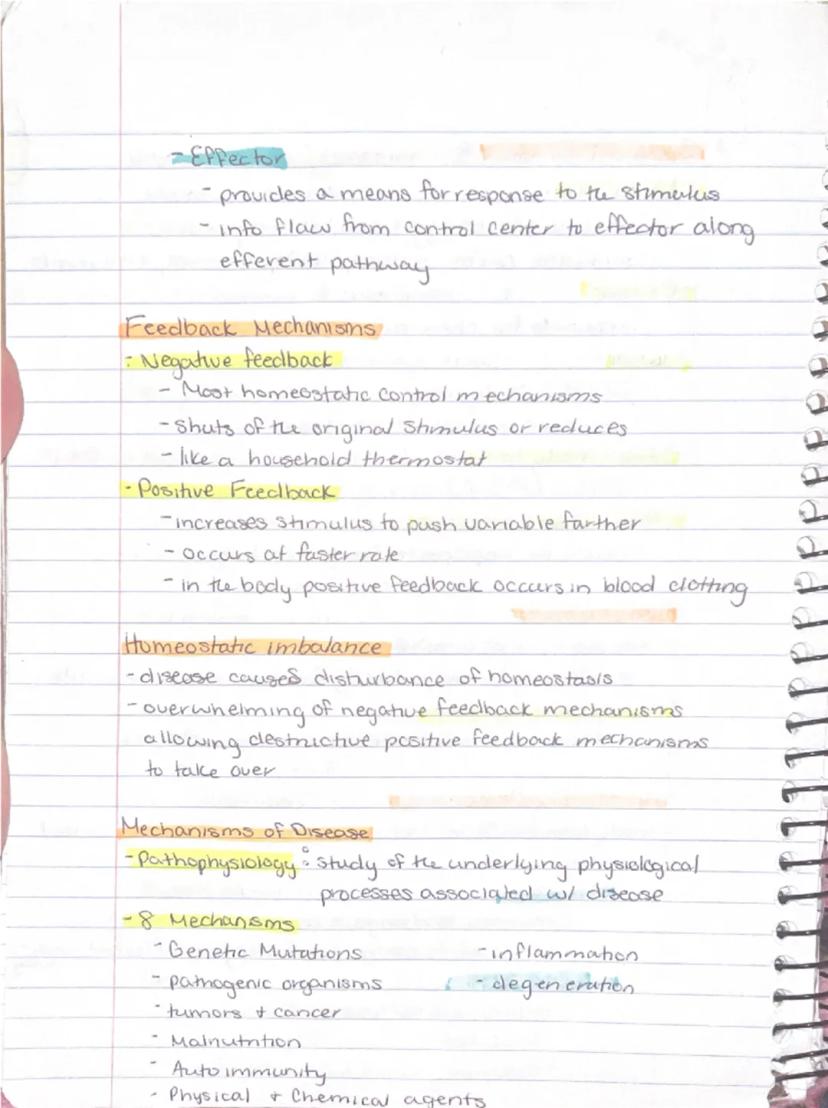 - Effector
- provides a means for response to the stimulus
- info flow from control center to effector along
efferent pathway
Feedback Mechanisms
- Negative feedback
- Most homeostatic control mechanisms
- Shuts of the original stimulus or reduces
- like a household thermostat
- Positive Feedback
- increases stimulus to push variable farther
- occurs at faster rate
- in the body positive feedback occurs in blood clotting
Homeostatic imbalance
- disease causes disturbance of homeostasis
- overwhelming of negative feedback mechanisms
allowing destrictive positive feedback mechanisms
to take over
Mechanisms of Disease
- Pathophysiology: study of the underlying physiological
processes associated w/ disease
- 8 Mechanisms
- Genetic Mutations - inflammation
- pathogenic organisms - degeneration
- tumors + cancer
- Malnutrition
- Auto immunity
- Physical + Chemical agents